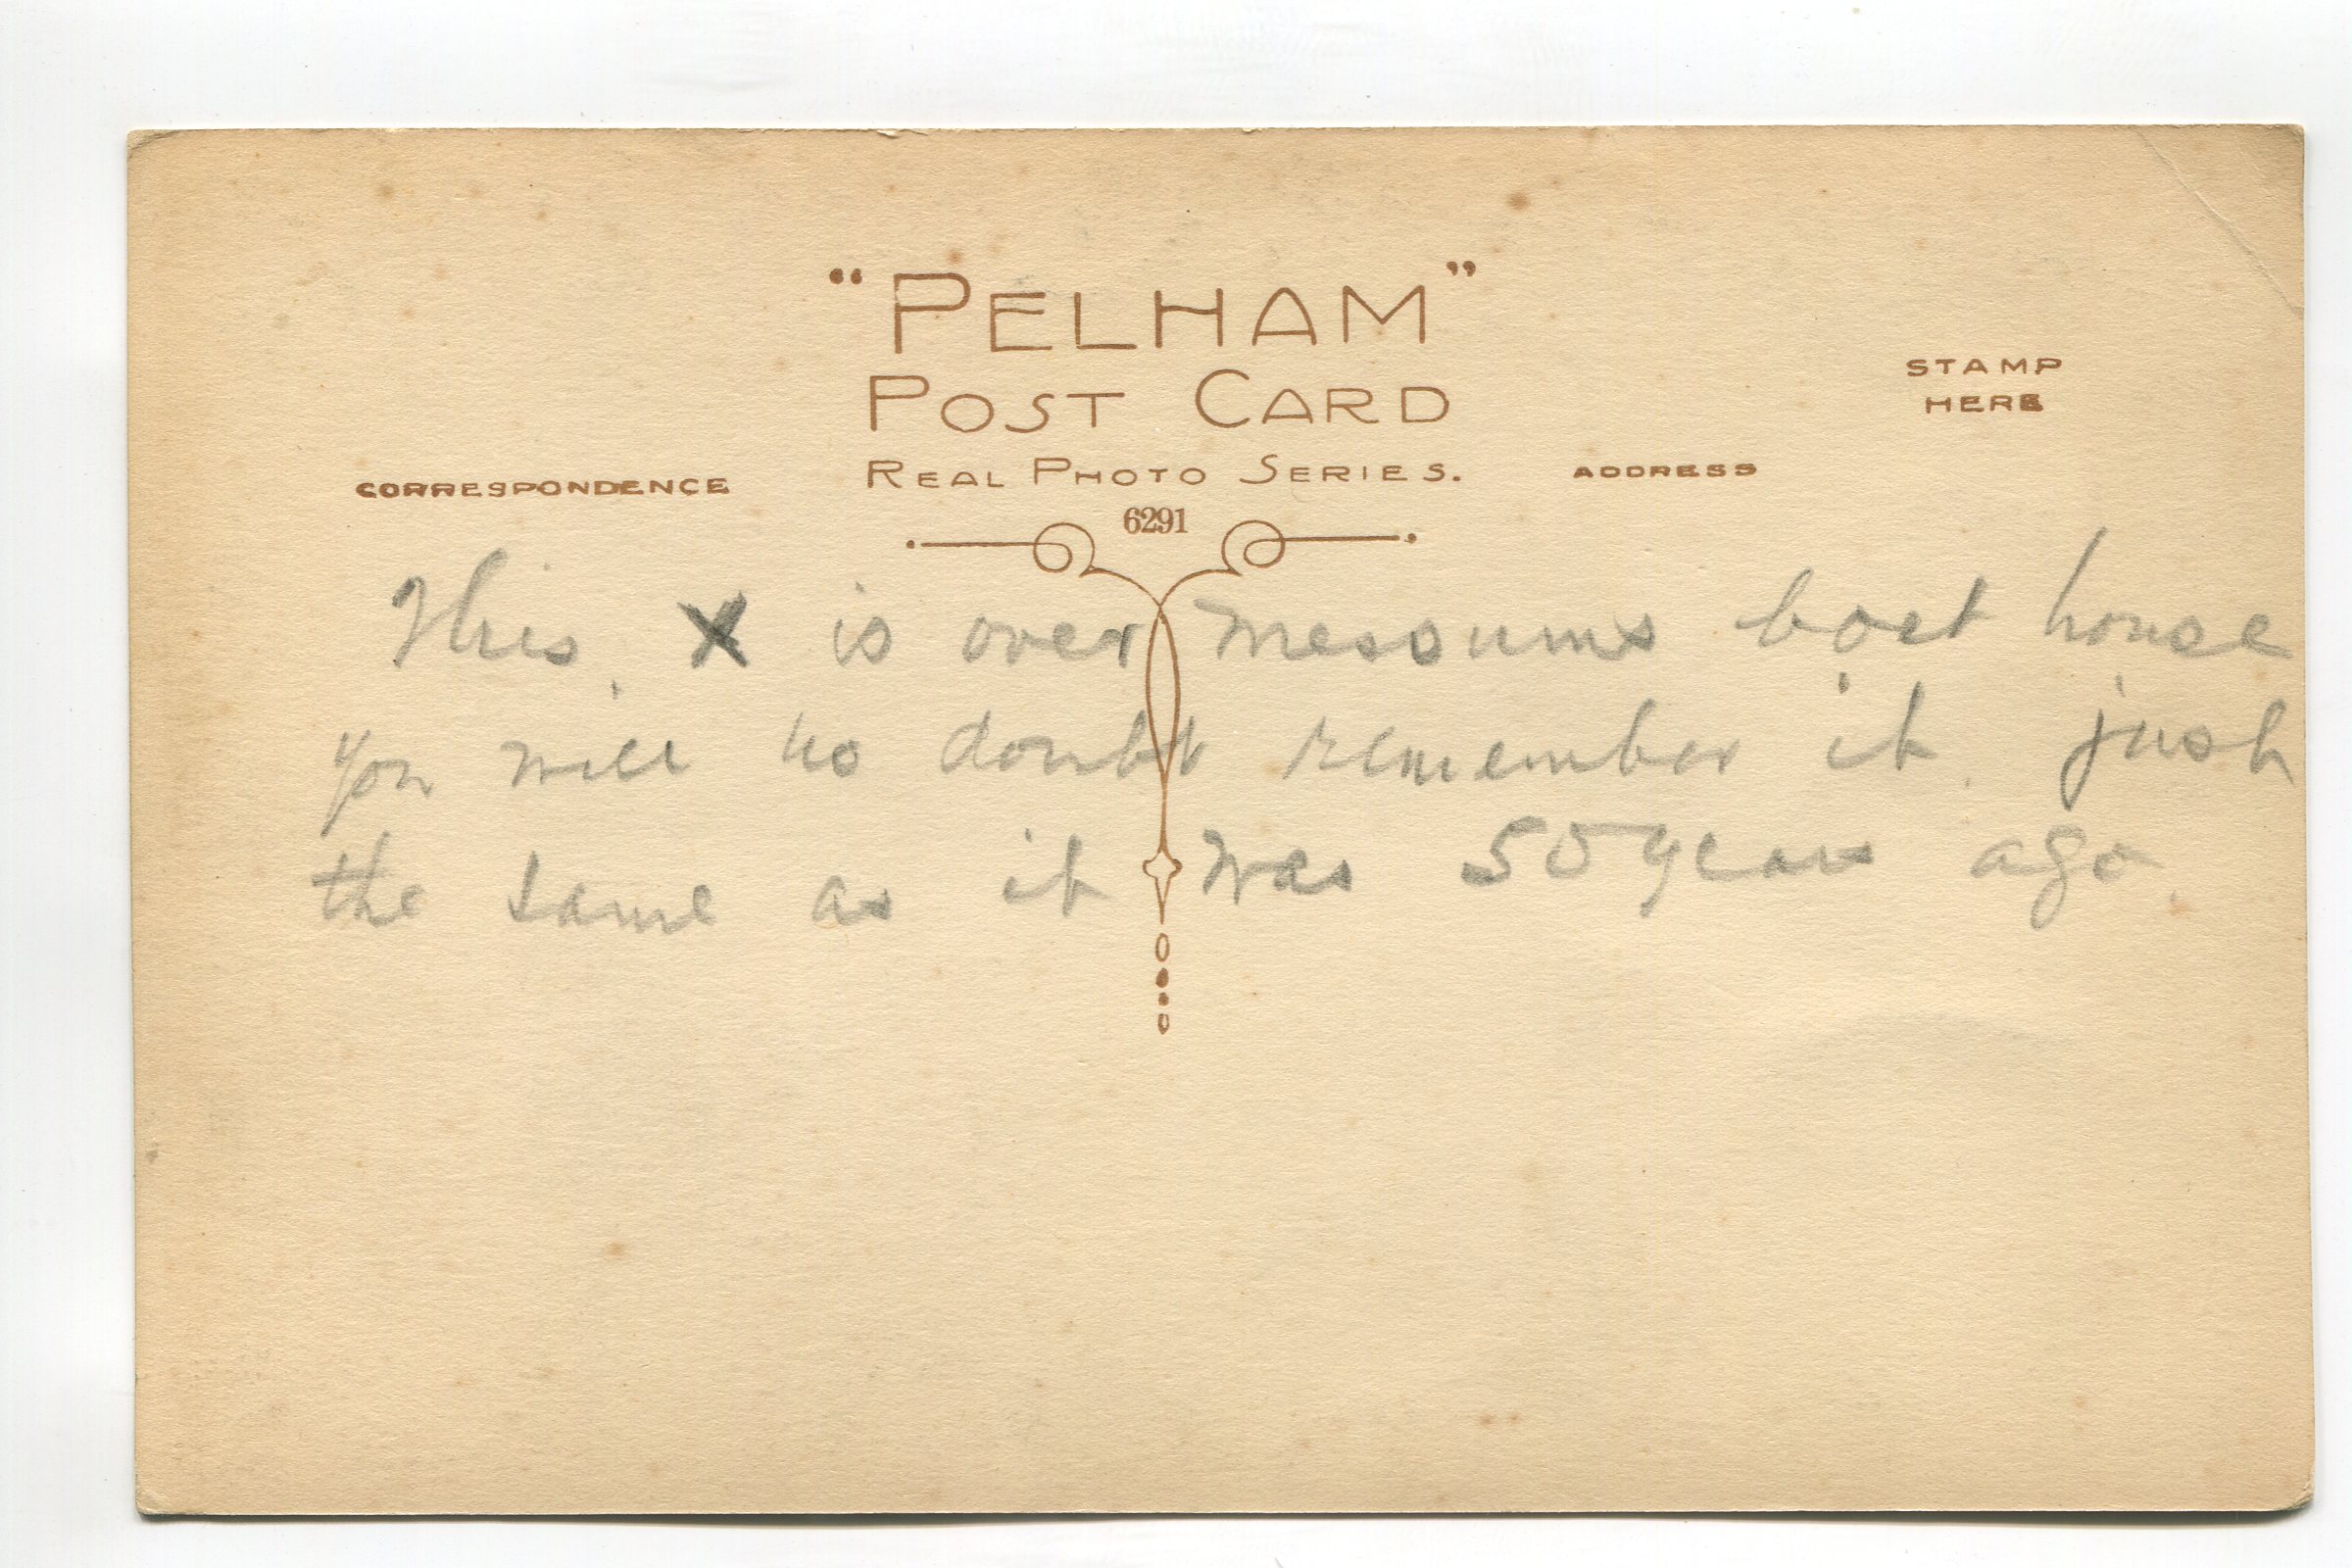 "PELHAM"
POST CARD
REAL PHOTO SERIES.
STAMP
HERE
CORRESPONDENCE
ADDRESS
6291
This X is over Messums boat house
you will no doubt remember it just
the same as it was 50 years ago.